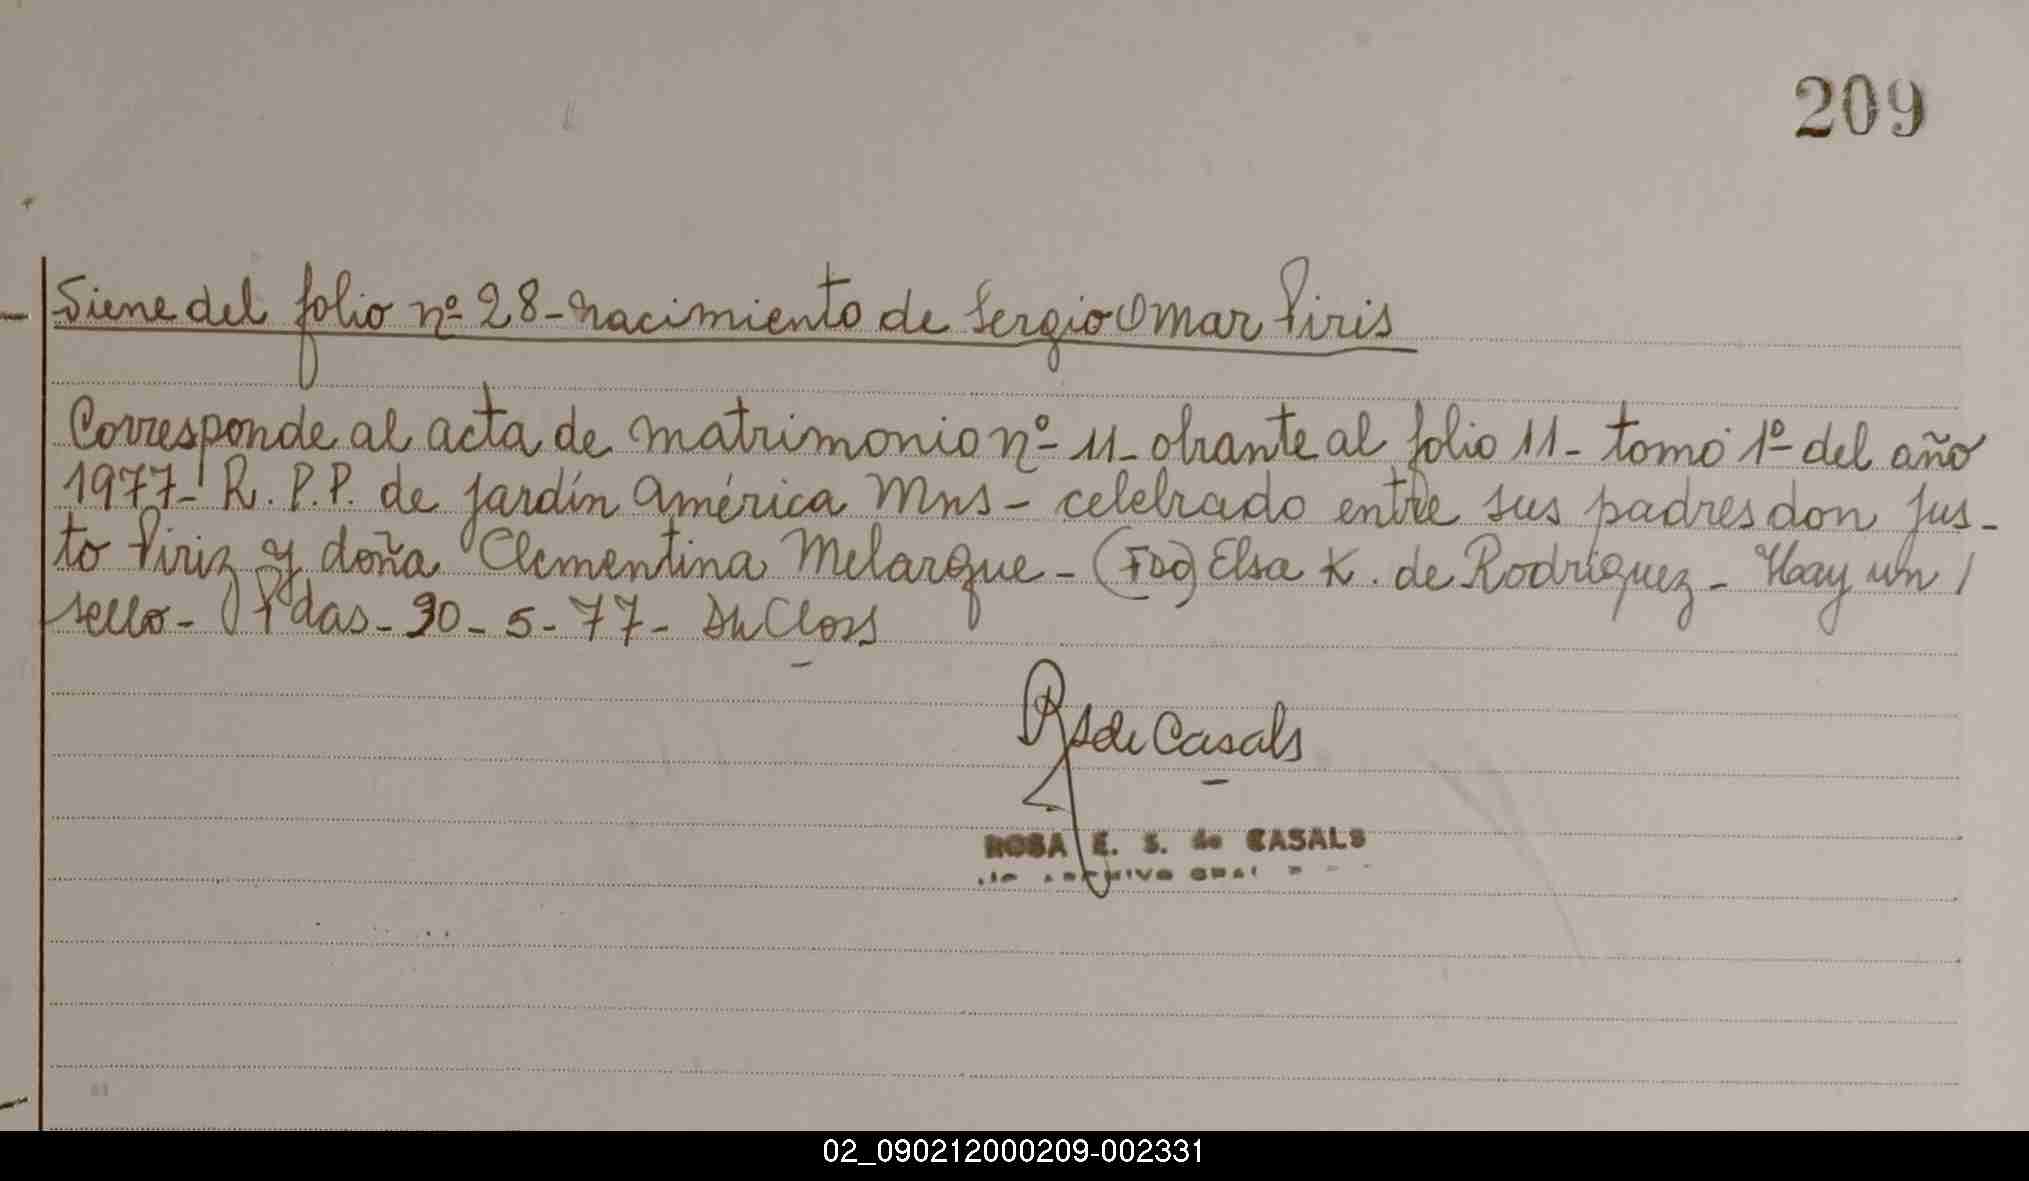 209
Viene del folio nº 28 - nacimiento de Sergio Omar Piris
Corresponde al acta de matrimonio nº 11 - obrante al folio 11 - tomo 1º del año
1977 - R. P. P. de Jardín América Mns - celebrado entre sus padres don Jus-
to Piriz y doña Clementina Melarque - (Fdo) Elsa K. de Rodríguez - Hay un /
sello - Pdas - 30 - 5 - 77 - Du Closs
RS de Casals
ROSA E. S. de CASALS
ARCHIVO GRAL
02_090212000209-002331